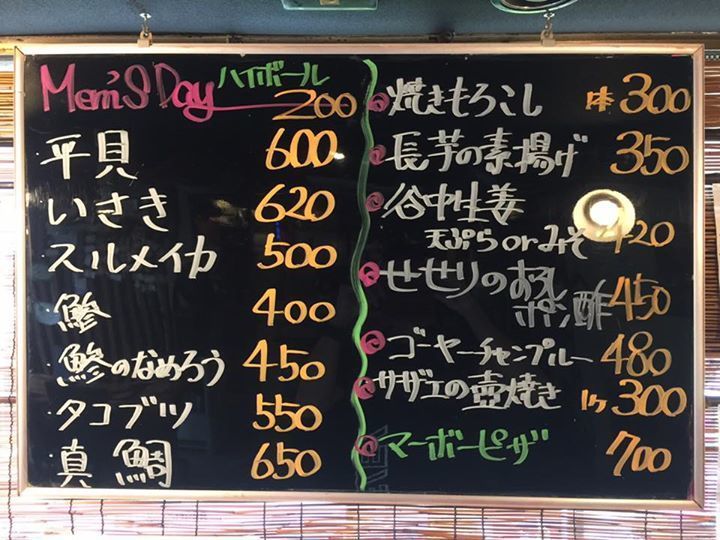 Men'S Day ハイボール 200
平貝 600
いさき 620
スルメイカ 500
鯵 400
鯵のなめろう 450
タコブツ 550
真鯛 650
焼きもろこし 1本 300
長芋の素揚げ 350
谷中生姜
天ぷらorみそ 420
せせりのおろし
ポン酢 450
ゴーヤーチャンプルー 480
サザエの壺焼き 1ケ 300
マーボーピザ 700